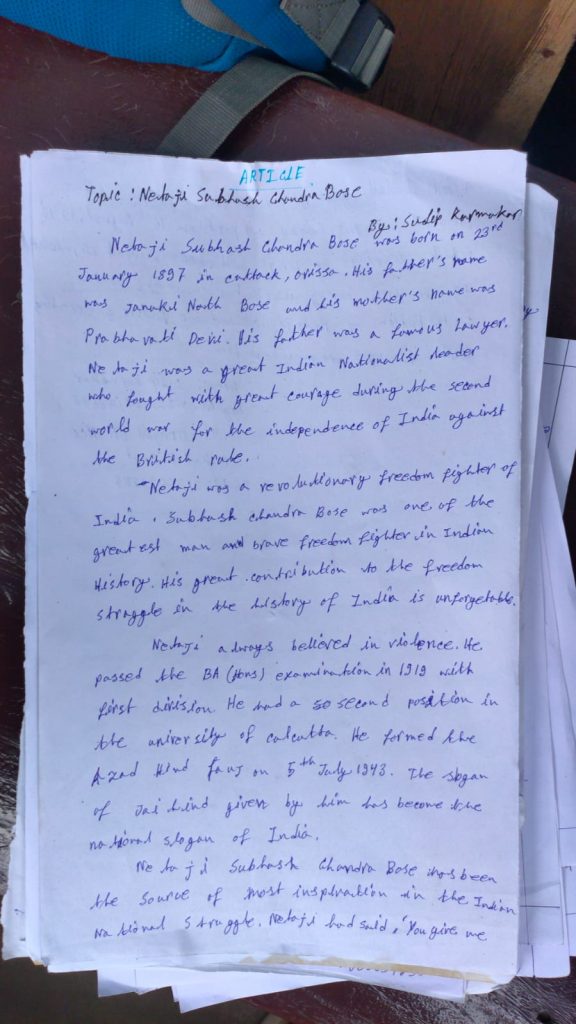 ARTICLE
Topic : Netaji Subhash Chandra Bose
By: Sudip Karmakar
Netaji Subhash Chandra Bose was born on 23rd
January 1897 in cattack, orissa. His father's name
was Janaki Nath Bose and his mother's name was
Prabhavati Devi. His father was a famous Lawyer.
Netaji was a great Indian Nationalist leader
who fought with great courage during the second
world war for the independence of India against
the British rule.
Netaji was a revolutionary freedom fighter of
India. Subhash chandra Bose was one of the
greatest man and brave freedom fighter in Indian
History. His great contribution to the freedom
struggle in the history of India is unforgetable.
Netaji always believed in violence. He
passed the BA (Hons) examination in 1919 with
first division. He had a so second position in
the university of calcutta. He formed the
Azad Hind fauj on 5th July 1943. The slogan
of Jai hind given by him has become the
national slogan of India.
Netaji Subhash Chandra Bose has been
the source of most inspiration in the Indian
National Struggle. Netaji had said, "You give me